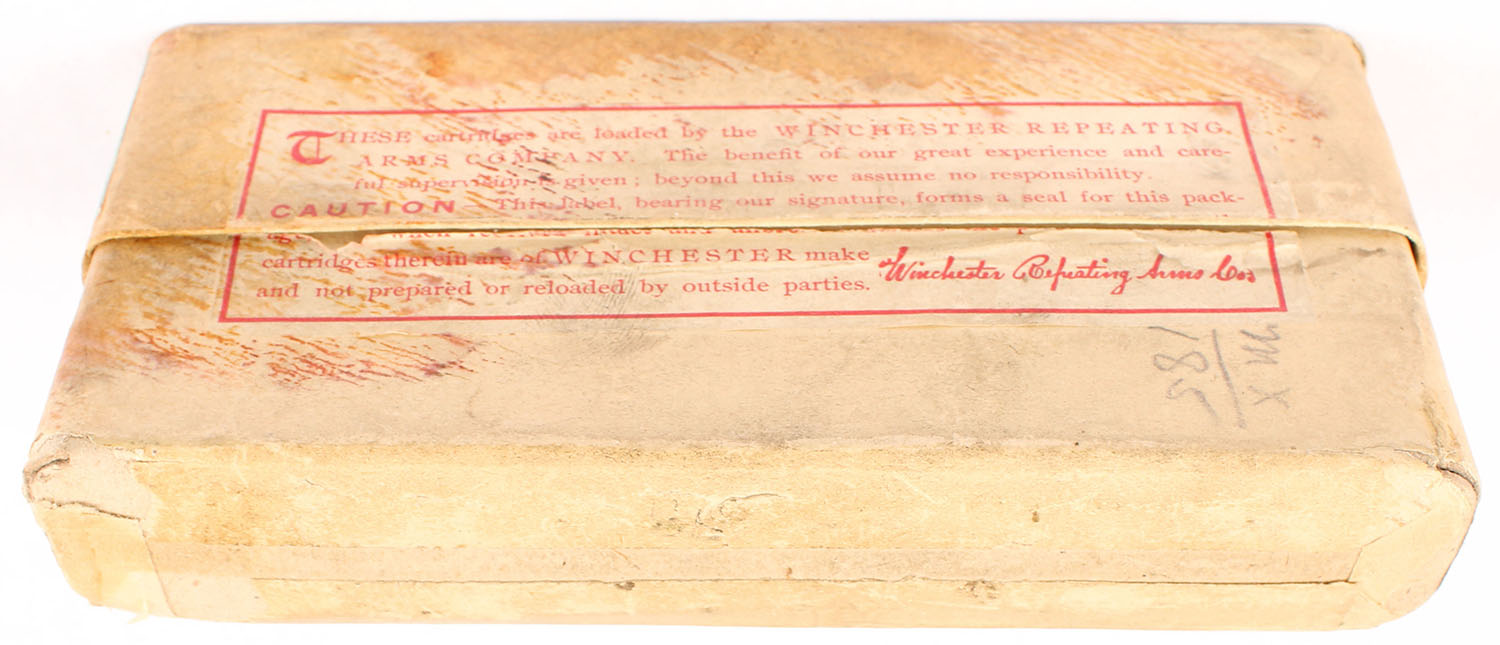 THESE cartridges are loaded by the WINCHESTER REPEATING
ARMS COMPANY. The benefit of our great experience and care-
ful supervision is given; beyond this we assume no responsibility.
CAUTION—This label, bearing our signature, forms a seal for this pack-
cartridges therein are of WINCHESTER make
and not prepared or reloaded by outside parties. Winchester Repeating Arms Co.